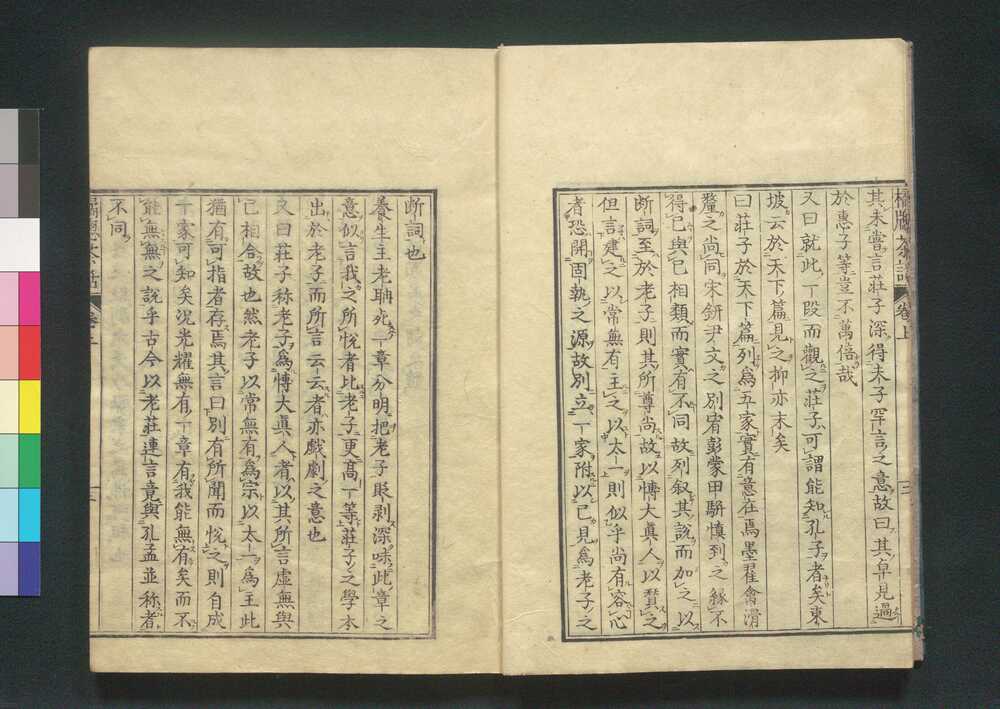 橘牕茶話 卷上
其未嘗言莊子深得夫子罕言之意故曰其卓見過
於惠子等豈不萬倍哉
又曰就此一段而觀之莊子可謂能知孔子者矣東
坡云於天下篇見之抑亦末矣
曰莊子於天下篇列為五家實有意在焉墨翟禽滑
釐之尚同宋鈃尹文之別宥彭蒙田駢慎到之緣不
得已與己相類而實有不同故列叙其說而加之以
断詞至於老子則其所尊尚故以博大眞人以賛之
但言建之以常無有主之以太一則似乎尚有容心
者恐開固執之源故別立一家附以己見為老子之
断詞也
養生主老聃死一章分明把老子貶剥深味此章之
意似言我之所悅者比老子更高一等莊子之學本
出於老子而所言云云者亦戯劇之意也
又曰莊子称老子為博大眞人者以其所言虛無與
己相合故也然老子以常無有為宗以太一為主此
猶有可指者存焉其言曰別有所聞而悅之則自成
一家可知矣况光耀無有一章有我能無有矣而不
能無無之說乎古今以老莊連言竟與孔孟並称者
不同
橘牕茶話